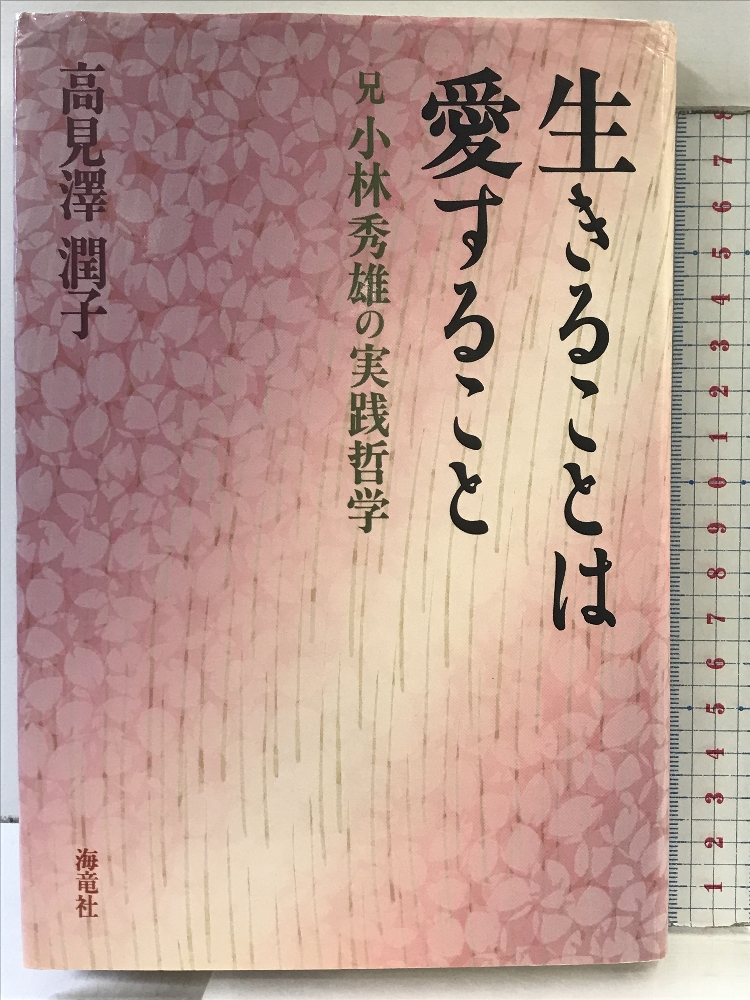 生きることは
愛すること
兄 小林秀雄の実践哲学
高見澤 潤子
海竜社
8
7
6
5
4
3
2
1
0
9
8
7
6
5
4
3
2
1